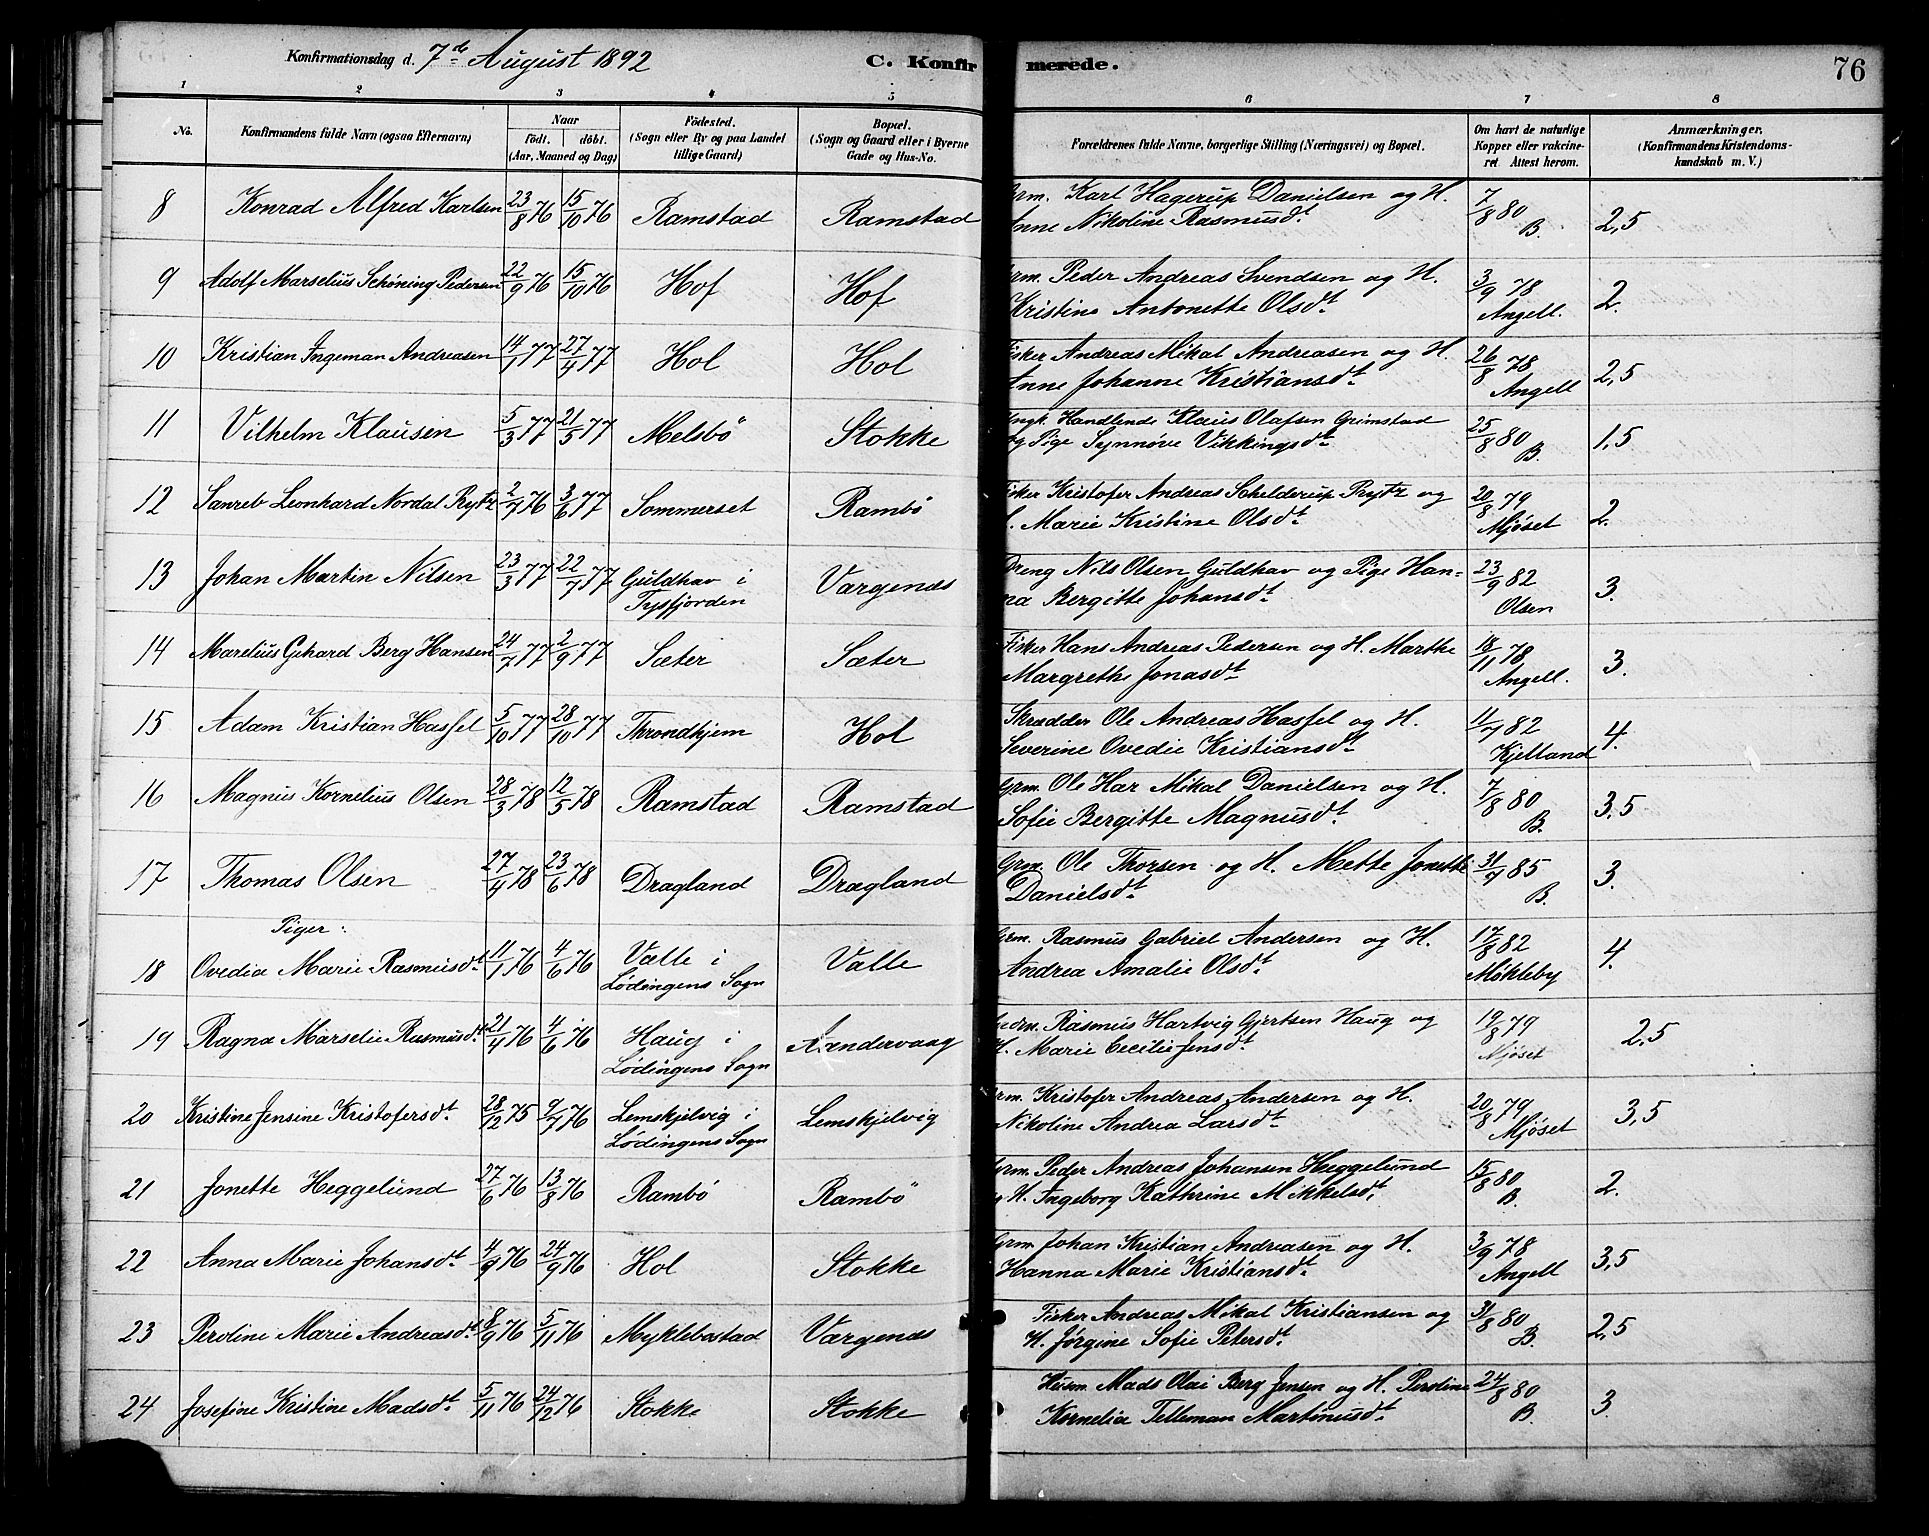 Konfirmationsdag d. 7de August 1892 C. Konfir merede. 76
1 2 3 4 5 6 7 8
No. Konfirmandens fulde Navn (ogsaa Efternavn) Naar født. døbt. (Aar, Maaned og Dag) Fødested. (Sogn eller By og paa Landet tillige Gaard) Bopæl. (Sogn og Gaard eller i Byerne Gade og Hus-No. Forældrenes fulde Navne, borgerlige Stilling (Næringsvei) og Bopæl. Om havt de naturlige Kopper eller vakcineret Attest herom. Anmærkninger. (Konfirmandens Kristendomskundskab m. V.)
8 Konrad Alfred Karlsen 23/8 76 15/10 76 Ramstad Ramstad Grm. Karl Hagerup Danielsen og H. 7/8 80 2,5
Anne Nikoline Rasmusdt B.
9 Adolf Marselius Schøning Pedersen 22/9 76 15/10 76 Hof Hof Grm. Peder Andreas Svendsen og H. 3/9 78 2.
Kristine Antonette Olsdt Angell.
10 Kristian Ingeman Andreasen 14/1 77 27/4 77 Hol Hol Fisker Andreas Mikal Andreasen og H. 26/8 78 2,5
Anne Johanne Kristiansdt Angell
11 Vilhelm Klausen 5/3 77 21/5 77 Melsbö Stokke Ungk. Handlende Klaus Olafsen Grimstad 25/8 80 1,5
og Pige Synnøve Vikkingsdt B.
12 Sanreb Leonhard Nordal Rytz 2/7 76 3/6 77 Sommerset Rambö Fisker Kristofer Andreas Schelderup Prytz og 20/8 79 2.
H. Marie Kristine Olsdt Mjøset
13 Johan Martin Nilsen 23/3 77 22/7 77 Guldhav i Vargenæs Dreng Nils Olsen Guldhav og Pige Han- 23/9 82 3.
Tysfjorden na Bergitte Johansdt Olsen
14 Marelius Gehard Berg Hansen 24/7 77 2/9 77 Sæter Sæter Fisker Hans Andreas Pedersen og H. Marthe 18/11 78 3.
Margrethe Jonasdt Angell.
15 Adam Kristian Hassel 5/10 77 28/10 77 Throndhjem Hol Skrædder Ole Andreas Hassel og H. 11/7 82 4.
Severine Ovedie Kristiansdt Kjelland
16 Magnus Kornelius Olsen 28/3 78 12/5 78 Ramstad Ramstad Grm. Ole Har Mikal Danielsen og H. 7/8 80 3,5
Sofie Bergitte Magnusdt B.
17 Thomas Olsen 27/4 78 23/6 78 Dragland Dragland Grm. Ole Thorsen og H. Mette Jonette 31/7 85 3.
Danielsdt B.
Piger:
18 Ovedia Marie Rasmusdt 11/1 76 4/6 76 Valle i Valle Grm. Rasmus Gabriel Andersen og H. 17/8 82 4.
Lødingens Sogn Andrea Amalie Olsdt Møkleby
19 Ragna Marselie Rasmusdt 21/4 76 4/6 76 Haug i Rasmus Hartvig Gjertsen Haug og 19/8 79 2,5
Lødingens Sogn H. Marie Cecilie Jensdt Mjøset
20 Kristine Jensine Kristofersdt 28/12 75 76 Lemskjelvig i Lemskjelvig Grm. Kristofer Andreas Andersen og H. 20/8 79 3,5
Lødingens Sogn Nikoline Andrea Larsdt Mjøset
21 Jonette Heggelund 27/6 76 13/8 76 Rambö Rambö Grm. Peder Andreas Johansen Heggelund 15/8 80 2.
og H. Ingeborg Kathrine Mikkelsdt B.
22 Anna Marie Johansdt 4/9 76 24/9 76 Hol Stokke Grm. Johan Kristian Andreasen og H. 3/9 78 3,5
Hanna Marie Kristiansdt Angell
23 Peroline Marie Andreasdt 8/9 76 5/11 76 Myklebostad Vargenæs Fisker Andreas Mikal Kristiansen og 31/8 80 2,5
H. Jørgine Sofie Petersdt B.
24 Josefine Kristine Madsdt 5/11 76 24/12 76 Stokke Stokke Husm. Mads Olai Berg Jensen og H. Peroline 24/8 80 3.
Kornelia Telleman Martinusdt B.